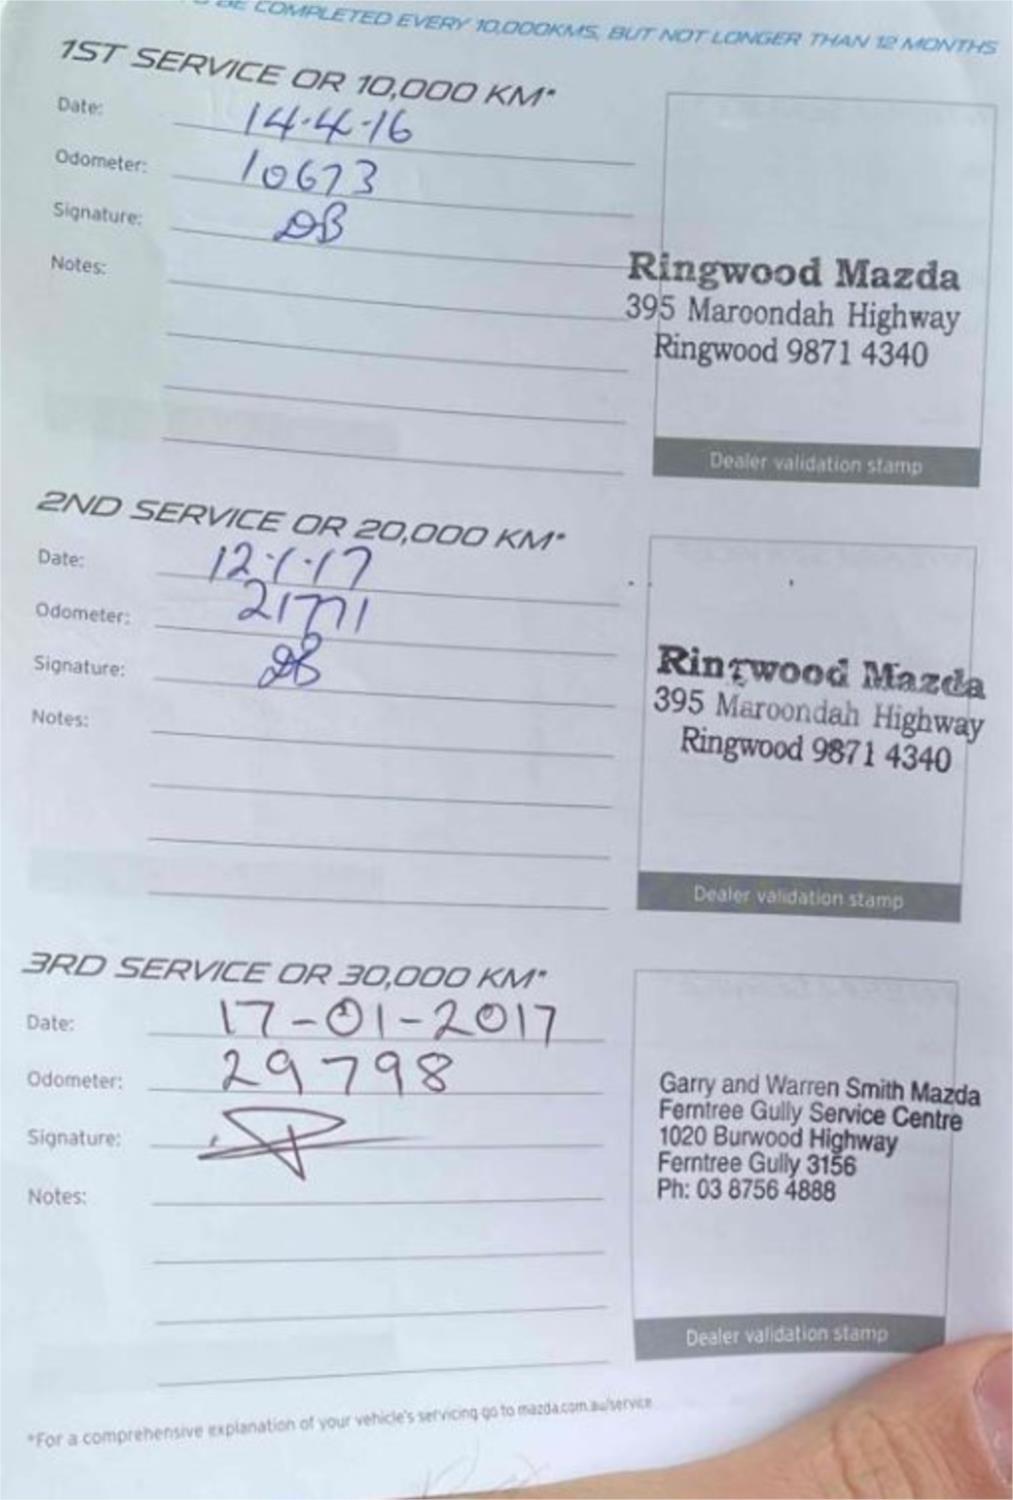 BE COMPLETED EVERY 10,000KMS, BUT NOT LONGER THAN 12 MONTHS
1ST SERVICE OR 10,000 KM*
Date: 14-4-16
Odometer: 10673
Signature: DB
Notes:
Ringwood Mazda
395 Maroondah Highway
Ringwood 9871 4340
Dealer validation stamp
2ND SERVICE OR 20,000 KM*
Date: 12-1-17
Odometer: 21771
Signature: DB
Notes:
Ringwood Mazda
395 Maroondah Highway
Ringwood 9871 4340
Dealer validation stamp
3RD SERVICE OR 30,000 KM*
Date: 17-01-2017
Odometer: 29798
Signature:
Notes:
Garry and Warren Smith Mazda
Ferntree Gully Service Centre
1020 Burwood Highway
Ferntree Gully 3156
Ph: 03 8756 4888
Dealer validation stamp
*For a comprehensive explanation of your vehicle's servicing go to mazda.com.au/service